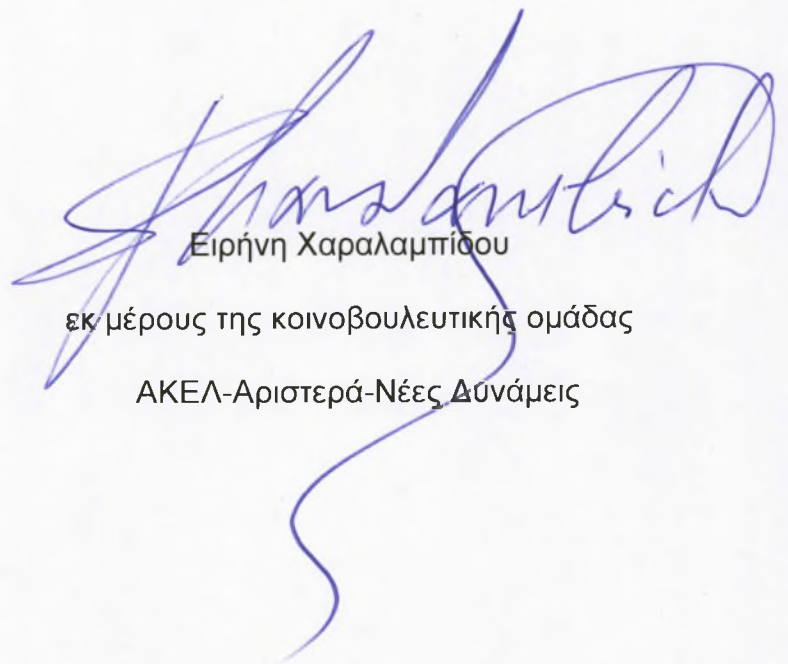 Ειρήνη Χαραλαμπίδου
εκ μέρους της κοινοβουλευτικής ομάδας
ΑΚΕΛ-Αριστερά-Νέες Δυνάμεις